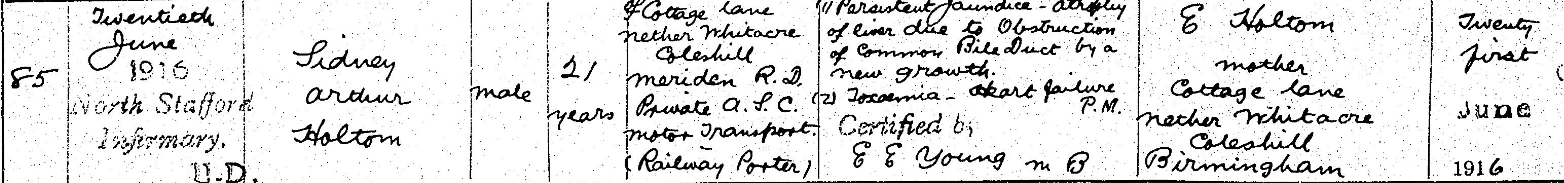 85
Twentieth
June
1916
North Stafford
Infirmary.
U.D.
Sidney
Arthur
Holtom
male
21
years
of Cottage lane
nether Whitacre
Coleshill
meriden R.D.
Private A.S.C.
motor Transport.
(Railway Porter)
(1) Persistent Jaundice - atrophy
of liver due to Obstruction
of Common Bile Duct by a
new growth.
(2) Toxaemia - Heart failure
P.M.
Certified by
E E Young m B
E Holtom
mother
Cottage lane
nether Whitacre
Coleshill
Birmingham
Twenty
first
June
1916